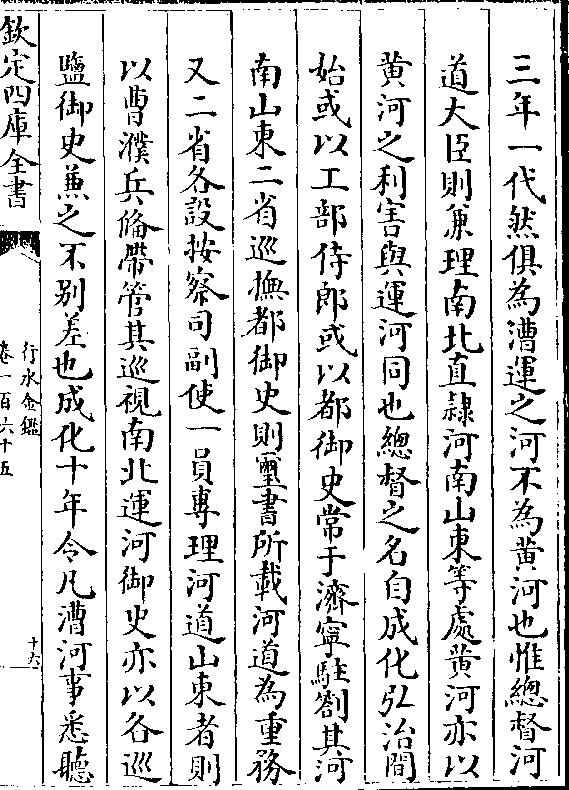 三年一代然俱為漕運之河不為黄河也惟總督河
道大臣則兼理南北直𨽻河南山東等處黄河亦以
黄河之利害與運河同也總督之名自成化弘治間
始或以工部侍郎或以都御史常于濟寧駐劄其河
南山東二省巡撫都御史則璽書所載河道為重務
又二省各設按察司副使一員專理河道山東者則
以曹濮兵備帶管其巡視南北運河御史亦以各巡
鹽御史兼之不别差也成化十年令凡漕河事悉聽
欽定四庫全書
行水金鑑
卷一百六十五
十六